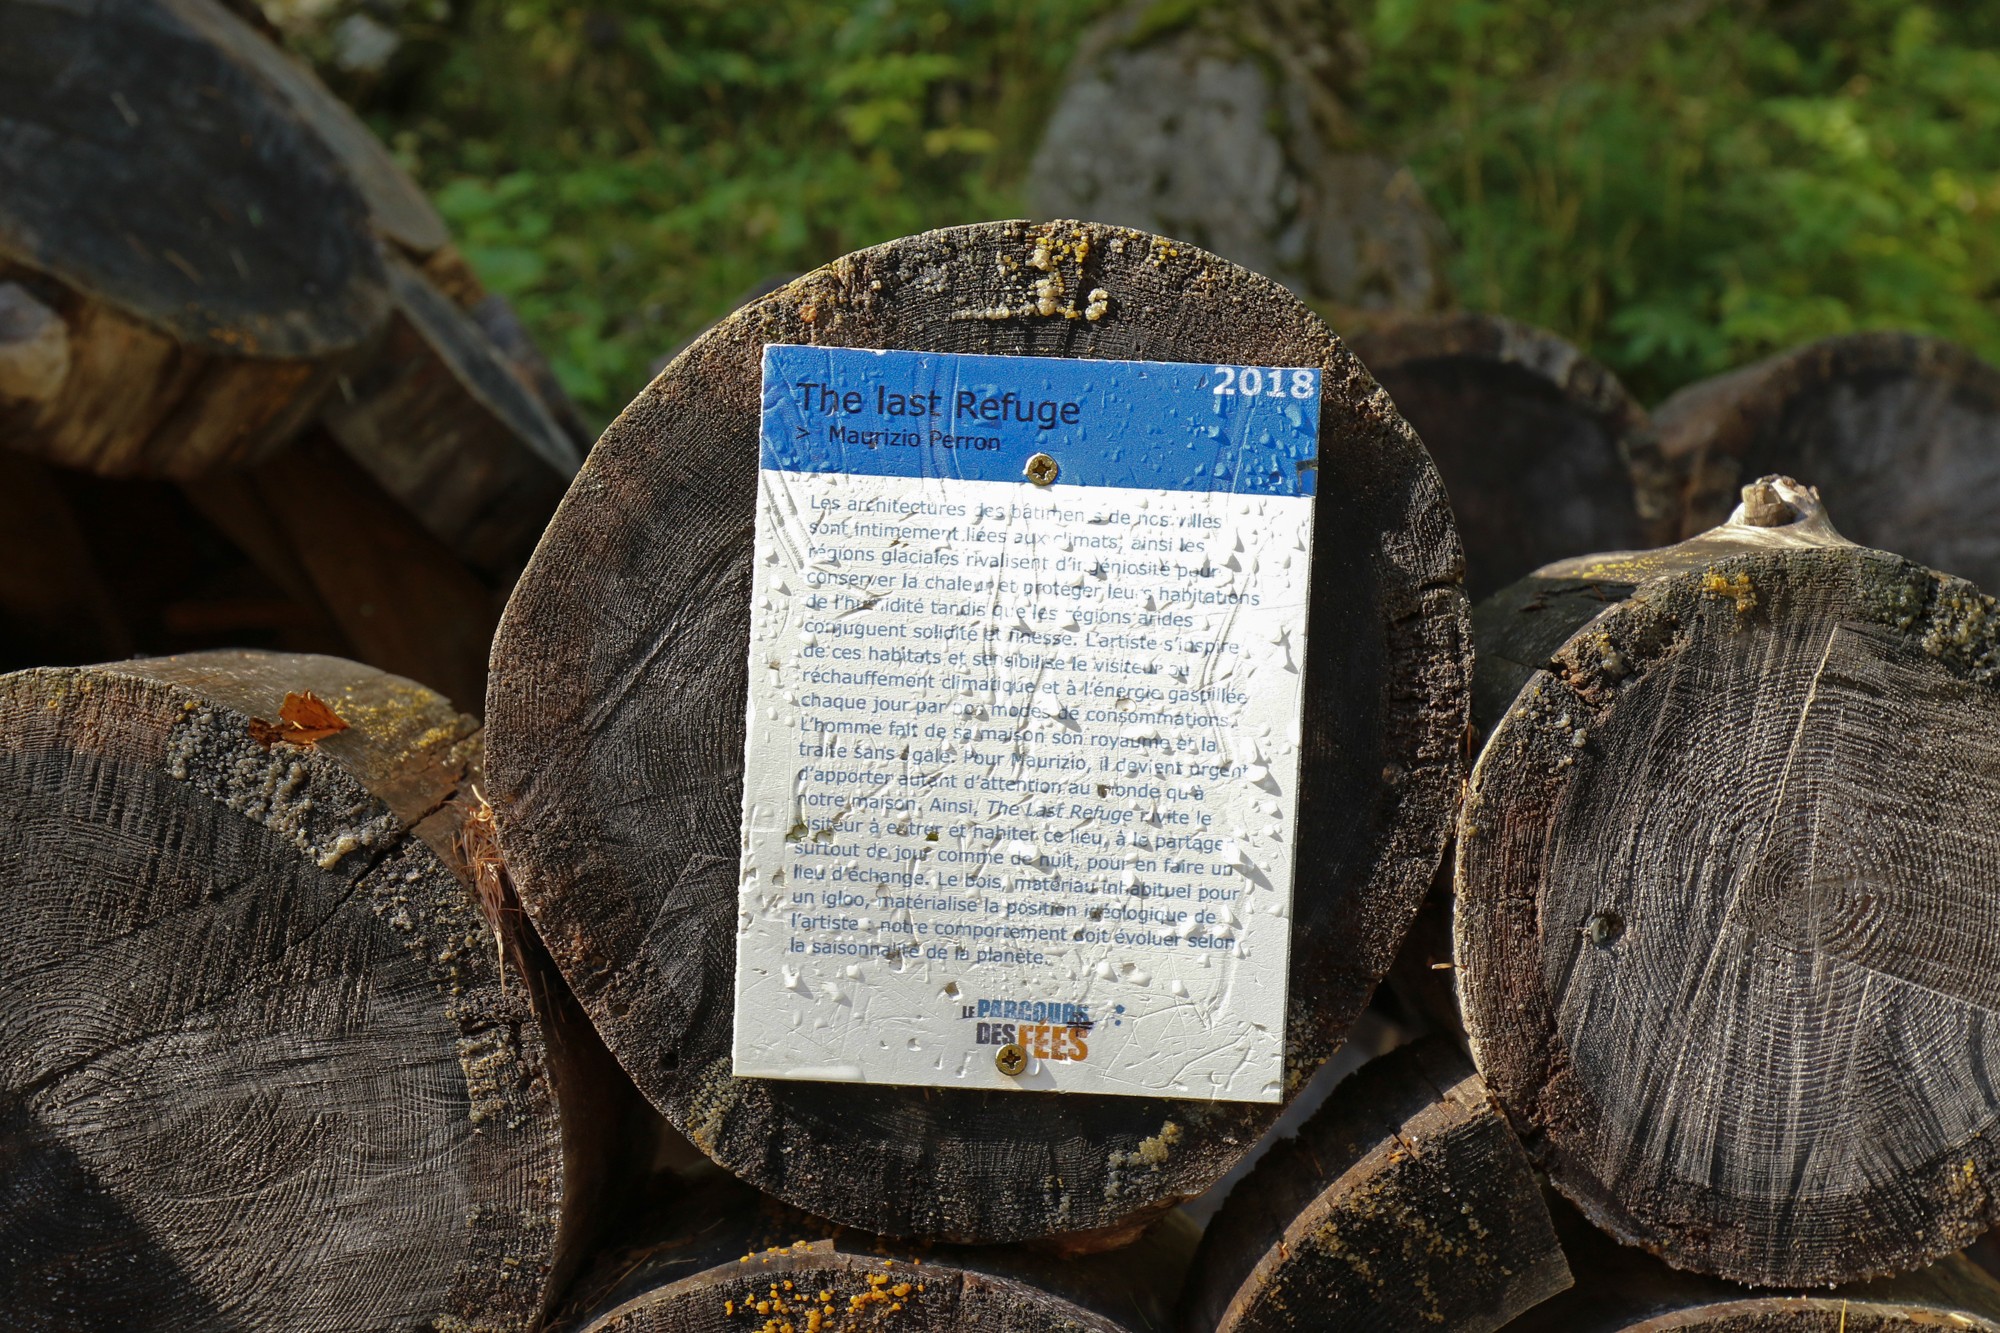 The last Refuge
2018
> Maurizio Perron
Les architectures des bâtiments de nos villes
sont intimement liées aux climats, ainsi les
régions glaciales rivalisent d'ingéniosité pour
conserver la chaleur et protéger leurs habitations
de l'humidité tandis que les régions arides
conjuguent solidité et finesse. L'artiste s'inspire
de ces habitats et sensibilise le visiteur au
réchauffement climatique et à l'énergie gaspillée
chaque jour par nos modes de consommations.
L'homme fait de sa maison son royaume et la
traite sans égale. Pour Maurizio, il devient urgent
d'apporter autant d'attention au monde qu'à
notre maison. Ainsi, The Last Refuge invite le
visiteur à entrer et habiter ce lieu, à le partager
surtout de jour comme de nuit, pour en faire un
lieu d'échange. Le bois, matériau inhabituel pour
un igloo, matérialise la position idéologique de
l'artiste : notre comportement doit évoluer selon
la saisonnalité de la planète.
LE PARCOURS
DES FÉES